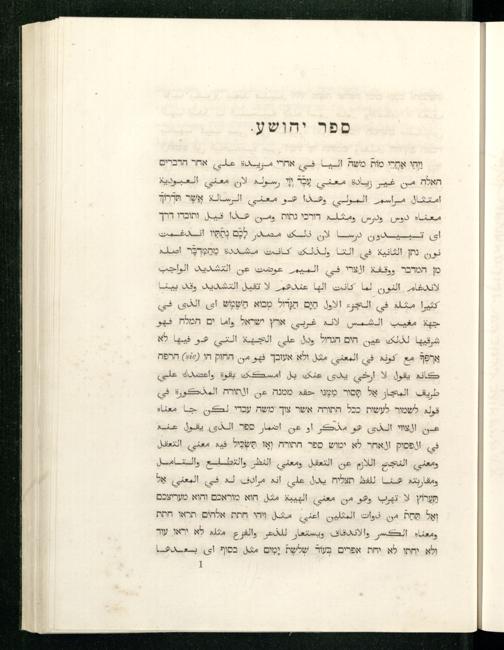 ספר יהושע.
וַיְהִי אַחֲרֵי מוֹת מֹשֶׁה اليا في אחרי مزيدة علي אחר הדברים
האלה من غير زيادة معني עֶבֶד יְיָ رسوله لان معني العبودية
امتثال مراسم المولي وهذا هو معني الرسالة אֲשֶׁר תִּדְרֹךְ
معناه دوس ودرس ومثله דורכי גתות ومن هذا قيل ותובדו דרך
اي تبيدون درسا لان ذلك مصدر לָכֶם נְתַתִּיו اندغمت
نون נתן الثانية في التا ولذلك كانت مشددة מֵהַמִּדְבָּר اصله
מן המדבר ووقفة الري في الميم عوضت عن التشديد الواجب
لاندغام النون لما كانت الها عندهم لا تقبل التشديد وقد بينا
كثيرا مثله في الجزء الاول הַיָּם הַגָּדוֹל מְבוֹא הַשֶּׁמֶשׁ اي الذي في
جهة مغيب الشمس لانه غربي ארץ ישראל واما ים המלח فهو
شرقيها لذلك عين הים הגדול ودل علي الجهة التي هو فيها לא
אַרְפְּךָ مع كونه في المعني مثل ולא אעזבך فهو من החזק הו (sic) הרפה
كانه يقول لا ارخي يدي عنك بل امسكك بقوة واعضدك علي
طريف المجاز אַל תָּסוּר מִמֶּנּוּ حقه ממנה عن התורה المذكورة في
قوله לשמור לעשות ככל התורה אשר צוך משה עבדי لكن جا معناه
عن הצווי الذي هو مذكر او عن اضمار ספר الذي يقول عنه
في הפסוק האחר לא ימוש ספר התורה וְאָז תַּשְׂכִּיל فيه معني التعقل
ومعني النجح اللازم عن التعقل ومعني النظر والتطلع والتامل
ومقاربته هنا للفظ תצליח يدل علي انه مرادف له في المعني אַל
תַּעֲרֹץ لا تهرب وهو من معني الهيبة مثل הוא מוראכם והוא מעריצכם
וְאַל תֵּחָת من ذوات المثلين اعني مثل ויהי חתת אלהים תראו חתת
ومعناه الكسر والاندقاق ويستعار للذعر والفزع مثله לא יראו עוד
ולא יחתו לא יחת אפרים בְּעוֹד שְׁלֹשֶׁת יָמִים مثل בסוף اي بعدها
I